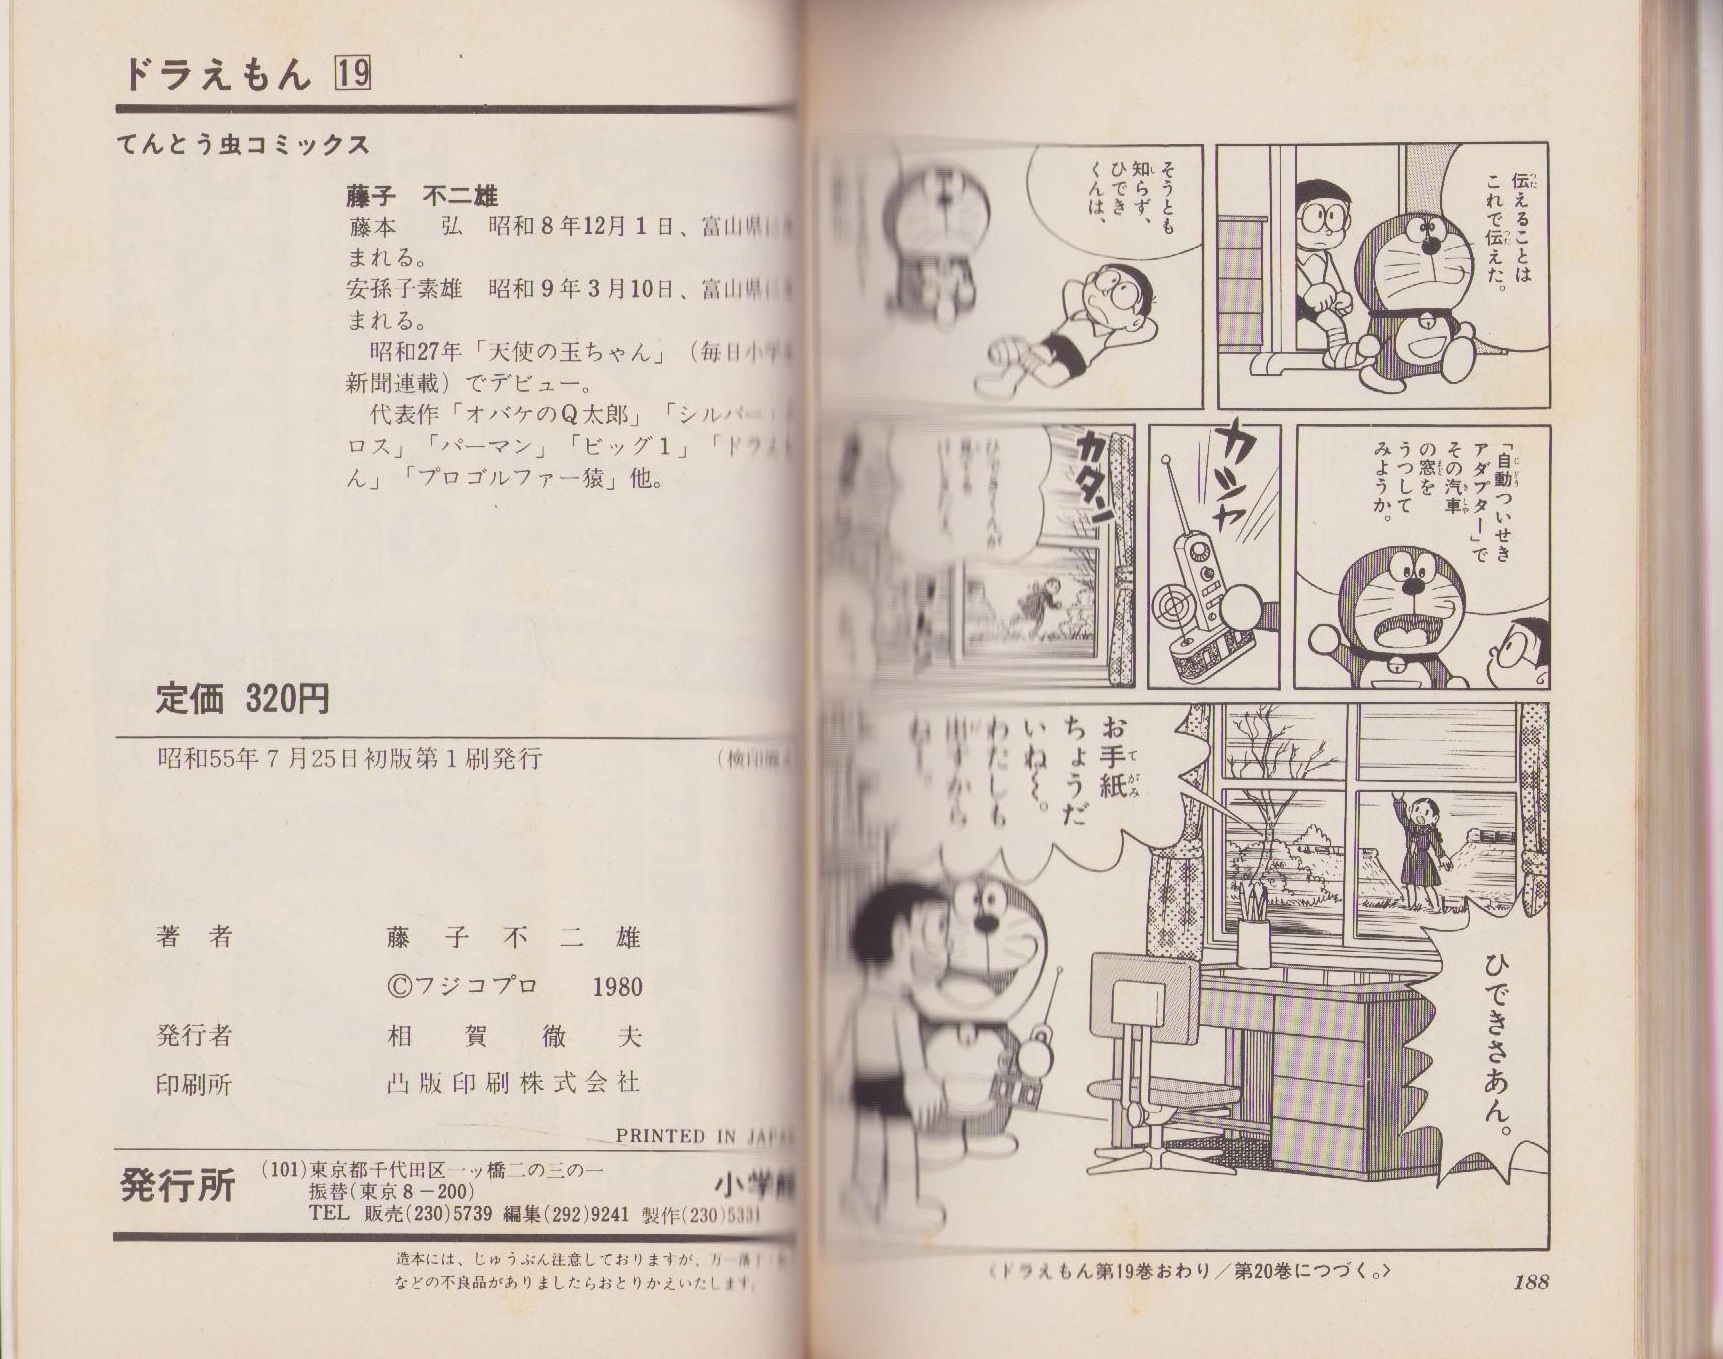 ドラえもん 19
てんとう虫コミックス
藤子 不二雄
藤本 弘 昭和8年12月1日、富山県に
まれる。
安孫子素雄 昭和9年3月10日、富山県に
まれる。
昭和27年「天使の玉ちゃん」(毎日小学
新聞連載)でデビュー。
代表作「オバケのQ太郎」「シルバー
ロス」「パーマン」「ビッグ1」「ドラえ
ん」「プロゴルファー猿」他。
定価 320円
昭和55年7月25日初版第1刷発行
(検印廃
著者 藤子不二雄
©フジコプロ 1980
発行者 相賀徹夫
印刷所 凸版印刷株式会社
PRINTED IN JAPA
発行所
(101)東京都千代田区一ッ橋二の三の一
振替(東京8-200)
TEL 販売(230)5739 編集(292)9241 製作(230)5331
小学館
造本には、じゅうぶん注意しておりますが、万一落丁
などの不良品がありましたらおとりかえいたします。
伝えることは
これで伝えた。
そうとも
知らず、
ひでき
くんは、
「自動ついせき
アダプター」で
その汽車
の窓を
うつして
みようか。
カシャ
カタン
ひできさあん。
お手紙
ちょうだ
いね〜。
わたしも
出すから
ね〜。
〈ドラえもん第19巻おわり/第20巻につづく。〉
188